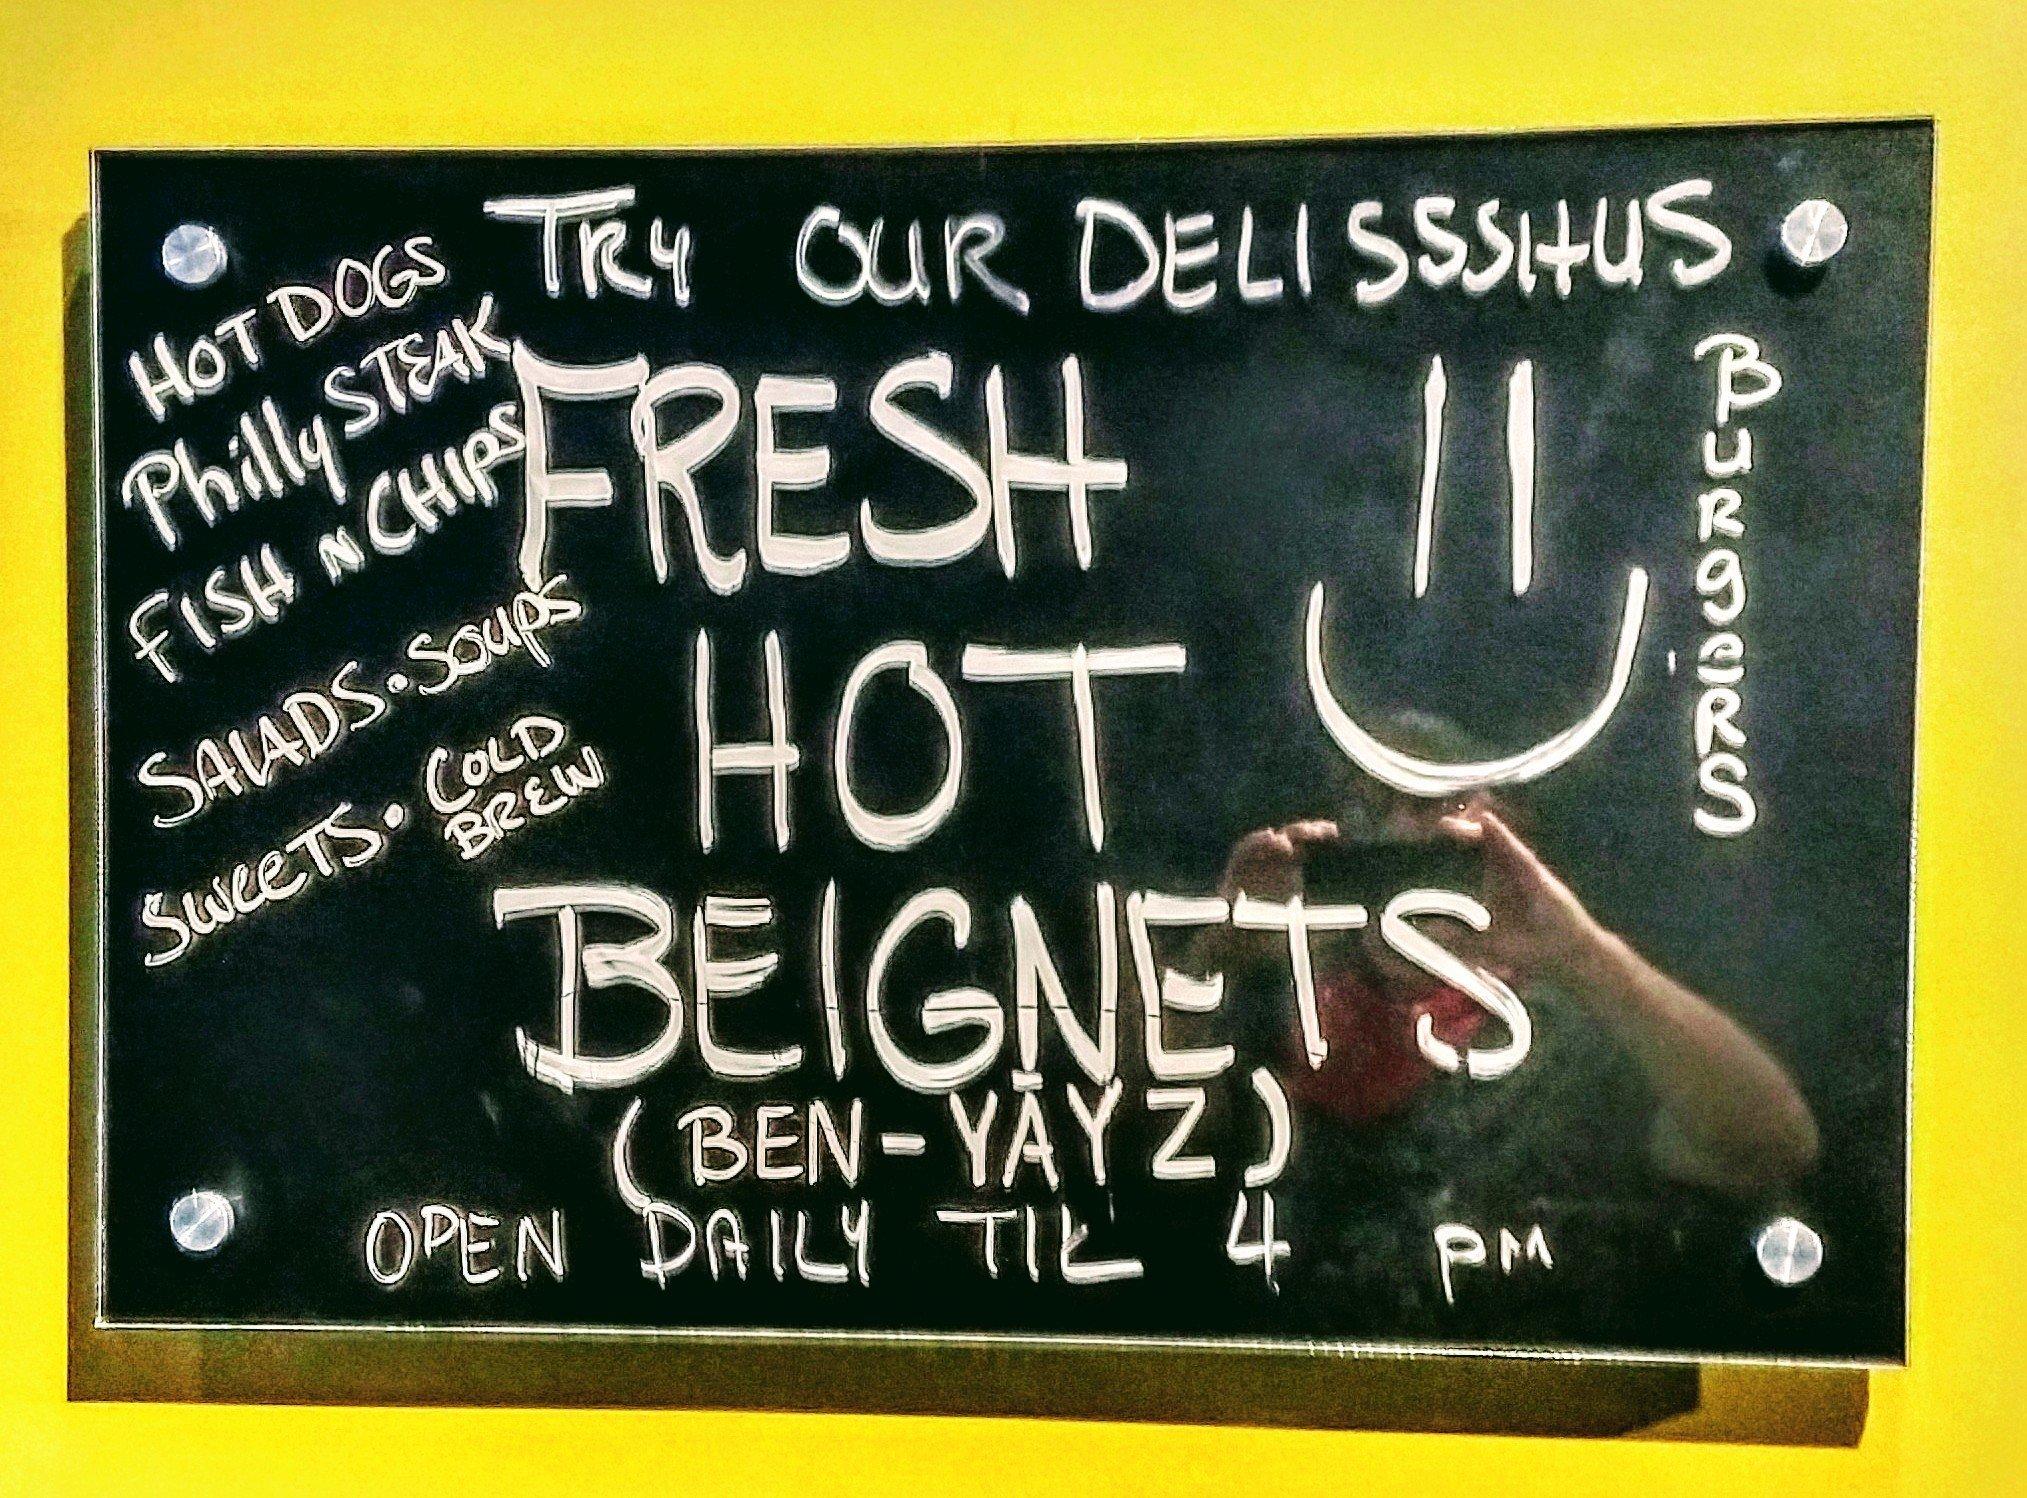 TRY OUR DELISSSIHUS
HOT DOGS
Philly STEAK
FISH N CHIPS
SALADS • SOUPS
SWEETS • COLD BREW
FRESH
HOT
BEIGNETS
(BEN-YĀYZ)
BURGERS
OPEN DAILY TIL 4 PM